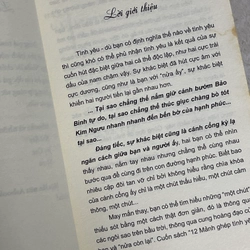 Lời giới thiệu
Tình yêu - dù bạn có định nghĩa thế nào về tình yêu
thì cũng khó có thể phủ nhận tình yêu là kết quả của sự
cuốn hút đặc biệt giữa hai cá thể độc lập, như hai cực trái
dấu của nam châm vậy. Sự khác biệt của cực âm với cực
cực dương, cũng như là bạn với "nửa ấy", sự khác biệt
khiến hai người tiến lại gần nhau hơn.
... Tại sao chẳng thể nắm giữ cánh bướm Bảo
Bình tự do, tại sao chẳng thể thúc giục chàng bò tót
Kim Ngưu nhanh nhanh đến bến bờ của hạnh phúc...
tại sao...
Đáng tiếc, sự khác biệt cũng là cánh cổng kỳ lạ
ngăn cách giữa bạn và người ấy, hai bạn có thể nhìn
thấy nhau, nắm tay nhau nhưng chẳng thể cùng nhau
bước qua để cùng đi trên con đường hạnh phúc. Biết bao
nhiêu cặp đôi tan vỡ chỉ bởi không hiểu rằng chìa khóa
của cánh cổng ấy chỉ là một chút thấu hiểu, một chút cảm
thông, một chút...
May mắn thay, bạn có thể tìm hiểu những "một chút"
thiếu sót bằng một cách thật đơn giản, đó là thông qua
các ngôi sao trên bầu trời, thông qua cung hoàng đạo của
bạn và "nửa còn lại". Cuốn sách "12 Mảnh ghép tình yêu"